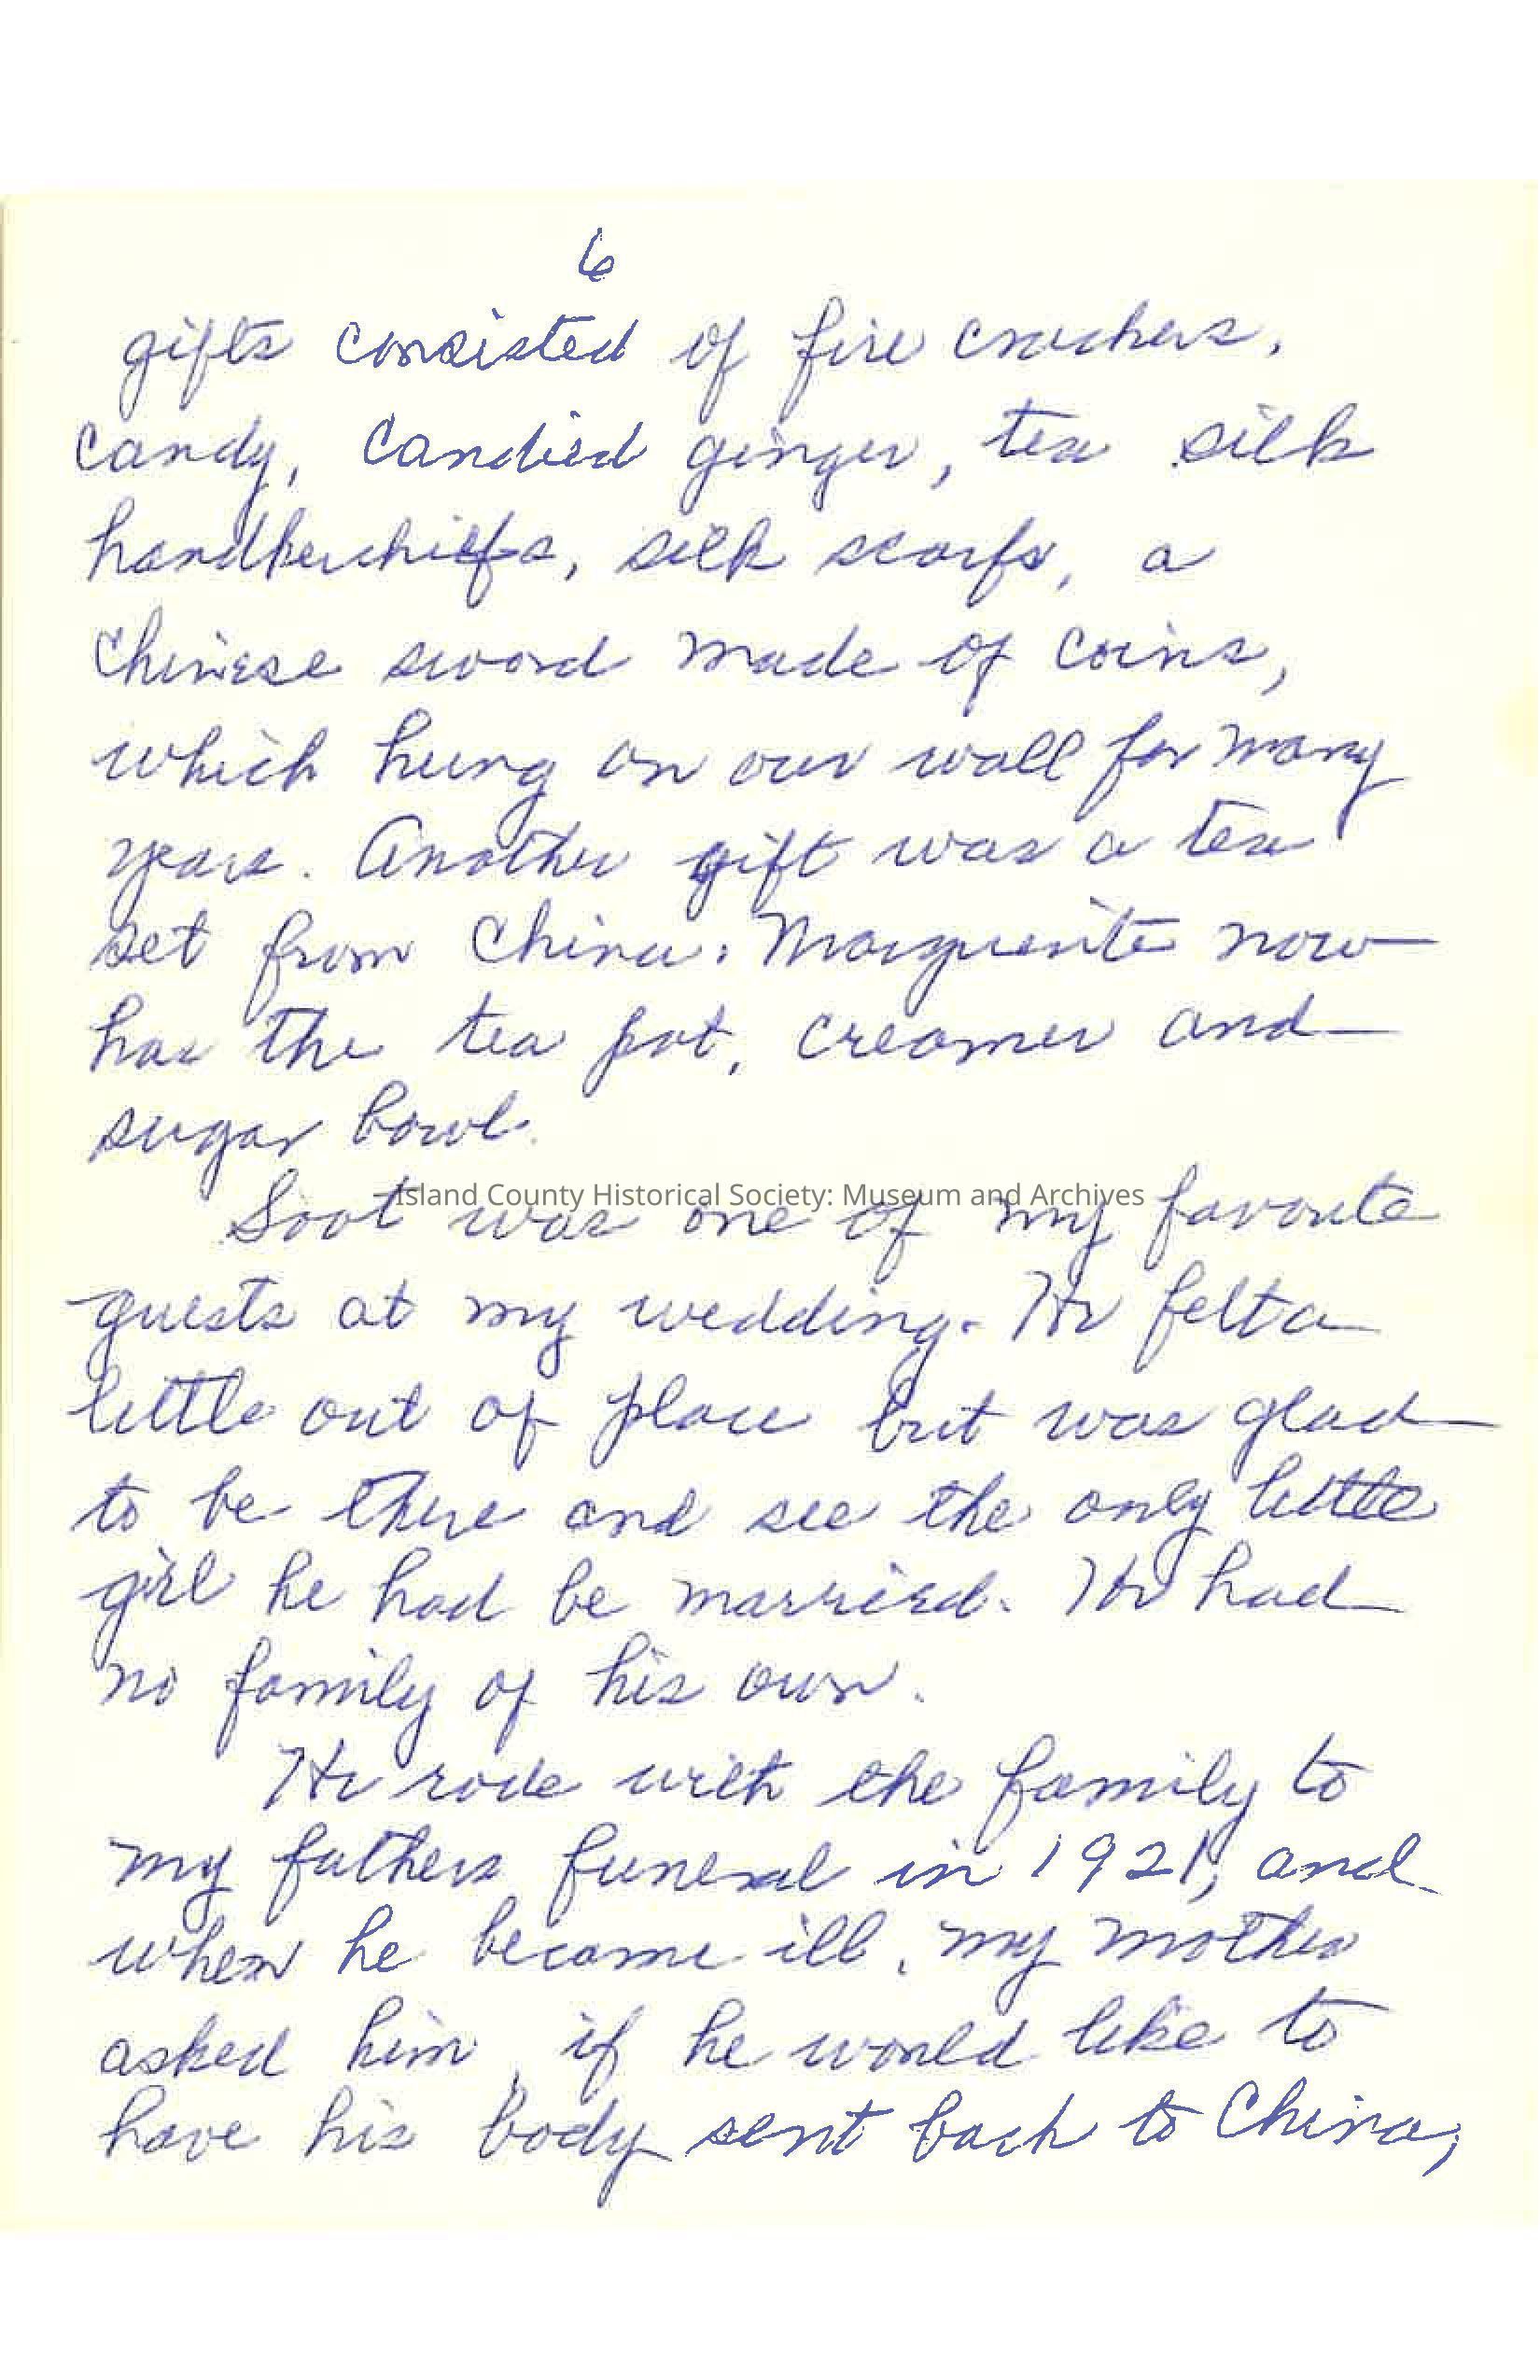 6
gifts consisted of fire crackers,
candy, candied ginger, tea silk
handkerchiefs, silk scarfs, a
Chinese sword made of coins,
which hung on our wall for many
years. Another gift was a tea
set from China. Marguerite now
has the tea pot, creamer and
sugar bowl.
Island County Historical Society: Museum and Archives
Soot was one of my favorite
guests at my wedding. He felt a
little out of place but was glad
to be there and see the only little
girl he had be married. He had
no family of his own.
He rode with the family to
my fathers funeral in 1921, and
when he became ill, my mother
asked him, if he would like to
have his body sent back to China,